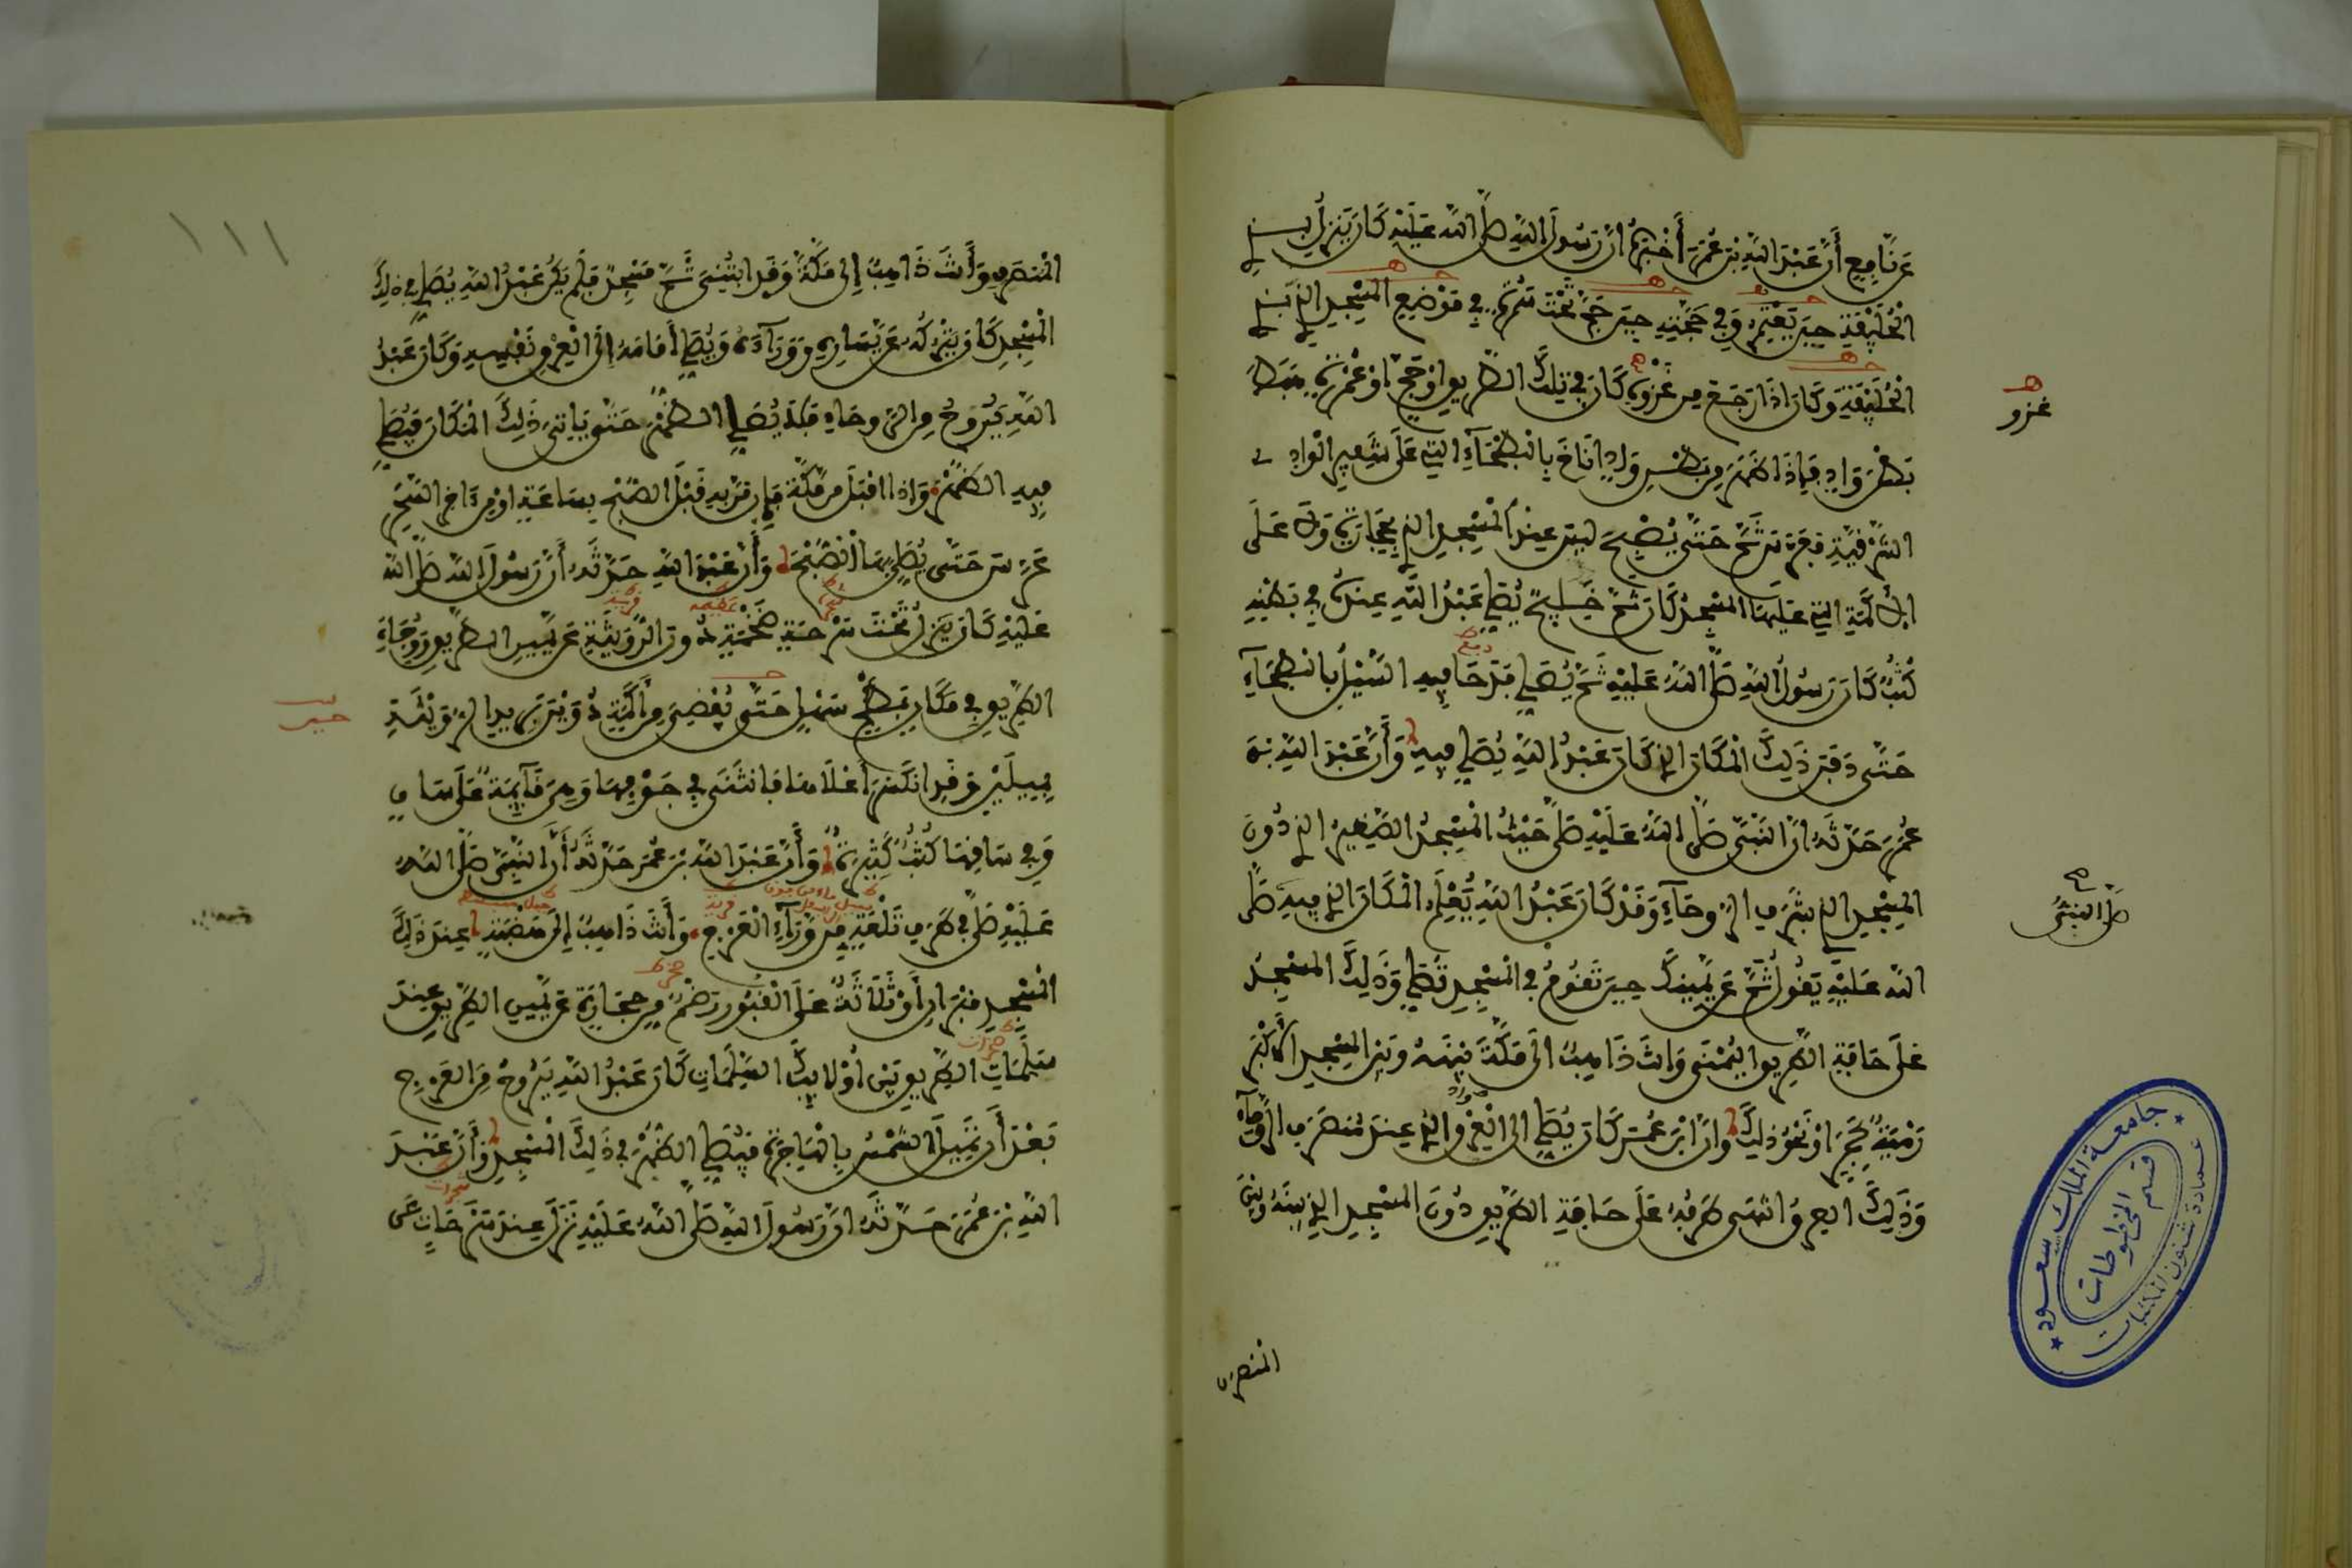 عَن نَّافِعٍ أَنَّ عَبْدَ اللهِ بْنَ عُمَرَ أَخْبَرَهُ أنَّ رَسُولَ اللهِ صَلَّى اللهُ عَلَيْهِ كَانَ يَنْزِلُ بِذِي
الْحُلَيْفَةِ حِينَ يَعْتَمِرُ وَفِي حَجَّتِهِ حِينَ حَجَّ تَحْتَ سَمُرَةٍ فِي مَوْضِعِ الْمَسْجِدِ الذِي بِذِي
الْحُلَيْفَةِ وَكَانَ اذَا رَجَعَ مِن غَزْوَةٍ كَانَ فِي تِلْكَ الطَّرِيقِ اوْ حَجٍّ اوْ عُمْرَةٍ هَبَطَ
بَطْنَ وَادٍ فَإِذَا ظَهَرَ مِن بَطْنِ وَادٍ انَاخَ بِالْبَطْحَاءِ التِي عَلَى شَفِيرِ الْوَادِي
الشَّرْقِيَّةِ فَعَرَّسَ ثَمَّ حَتَّى يُصْبِحَ لَيْسَ عِنْدَ الْمَسْجِدِ الذِي بِحِجَارَةٍ وَلَا عَلَى
الاكَمَةِ التِي عَلَيْهَا الْمَسْجِدُ كَانَ ثَمَّ خَلِيجٌ يُصَلِّي عَبْدُ اللهِ عِنْدَهُ فِي بَطْنِهِ
كُثُبٌ كَانَ رَسُولُ اللهِ صَلَّى اللهُ عَلَيْهِ ثَمَّ يُصَلِّي فَدَحَا فِيهِ السَّيْلُ بِالْبَطْحَاءِ
دفع
حَتَّى دَفَنَ ذَلِكَ الْمَكَانَ الذِي كَانَ عَبْدُ اللهِ يُصَلِّي فِيهِ وَأَنَّ عَبْدَ اللهِ بْنَ
عُمَرَ حَدَّثَهُ انَّ النَّبِيَّ صَلَّى اللهُ عَلَيْهِ صَلَّى حَيْثُ الْمَسْجِدُ الصَّغِيرُ الذِي دُونَ
الْمَسْجِدِ الذِي بِشَرَفِ الرَّوْحَاءِ وَقَدْ كَانَ عَبْدُ اللهِ يُعْلِمُ الْمَكَانَ الذِي فِيهِ صَلَّى
اللهُ عَلَيْهِ يَقُولُ ثَمَّ عَن يَّمِينِكَ حِينَ تَقُومُ فِي الْمَسْجِدِ تُصَلِّي وَذَلِكَ الْمَسْجِدُ
عَلَى حَافَةِ الطَّرِيقِ الْيُمْنَى وَانْتَ ذَاهِبٌ الَى مَكَّةَ بَيْنَهُ وَبَيْنَ الْمَسْجِدِ الاكْبَرِ
رَمْيَةٌ بِحَجَرٍ اوْ نَحْوُ ذَلِكَ وَانَّ ابْنَ عُمَرَ كَانَ يُصَلِّي الى الْعِرْقِ الذِي عِنْدَ مُنْصَرَفِ الرَّوْحَاءِ
وَذَلِكَ الْعِرْقُ انْتَهَى طَرَفُهُ عَلَى حَافَةِ الطَّرِيقِ دُونَ الْمَسْجِدِ الذِي بَيْنَهُ وَبَيْنَ
المنصرف
غزو
صلى النبي
جامعة الملك سعود
قسم المخطوطات
عمادة شئون المكتبات
١١١
الْمُنْصَرَفِ وَأَنْتَ ذَاهِبٌ إِلَى مَكَّةَ وَقَدِ ابْتُنِيَ ثَمَّ مَسْجِدٌ فَلَمْ يَكُنْ عَبْدُ اللهِ يُصَلِّي فِي ذَلِكَ
الْمَسْجِدِ كَانَ يَتْرُكُهُ عَن يَّسَارِهِ وَوَرَاءَهُ وَيُصَلِّي أَمَامَهُ إِلَى الْعِرْقِ نَفْسِهِ وَكَانَ عَبْدُ
اللهِ يَرُوحُ مِنَ الرَّوحَاءِ فَلَا يُصَلِّي الظُّهْرَ حَتَّى يَاتِيَ ذَلِكَ الْمَكَانَ فَيُصَلِّي
فِيهِ الظُّهْرَ وَاذَا اقْبَلَ مِن مَّكَّةَ فَإِن مَرَّ بِهِ قَبْلَ الصُّبْحِ بِسَاعَةٍ اوْ مِن اخِرِ السَّحَرِ
عَرَّسَ حَتَّى يُصَلِّيَ بِهَا الصُّبْحَ وَأَنَّ عَبْدَ اللهِ حَدَّثَهُ أَنَّ رَسُولَ اللهِ صَلَّى اللهُ
عَلَيْهِ كَانَ يَنْزِلُ تَحْتَ سَرْحَةٍ ضَخْمَةٍ دُونَ الرُّوَيْثَةِ عَن يَّمِينِ الطَّرِيقِ وَوُجَاهَ
عظيمة
قرية
الطَّرِيقِ فِي مَكَانٍ بَطْحٍ سَهْلٍ حَتَّى يُفْضِيَ مِن أَكَمَةٍ دُوَيْنَ بَرِيدِ الرُّوَيْثَةِ
حين
بِمِيلَيْنِ وَقَدِ انْكَسَرَ أَعْلَاهَا فَانْثَنَى فِي جَوْفِهَا وَهِيَ قَائِمَةٌ عَلَى سَاقٍ
وَفِي سَاقِهَا كُثُبٌ كَثِيرَةٌ وَأَنَّ عَبْدَ اللهِ بْنَ عُمَرَ حَدَّثَهُ أَنَّ النَّبِيَّ صَلَّى اللهُ
عَلَيْهِ صَلَّى فِي طَرَفِ تَلْعَةٍ مِن وَّرَاءِ الْعَرْجِ وَأَنْتَ ذَاهِبٌ إِلَى هَضْبَةٍ عِنْدَ ذَلِكَ
قرية
الْمَسْجِدِ قَبْرَانِ أَوْ ثَلَاثَةٌ عَلَى الْقُبُورِ رَضْمٌ مِن حِجَارَةٍ عَن يَّمِينِ الطَّرِيقِ عِنْدَ
سَلِمَاتِ الطَّرِيقِ بَيْنَ أُوْلَائِكَ السَّلِمَاتِ كَانَ عَبْدُ اللهِ يَرُوحُ مِنَ الْعَرْجِ
بَعْدَ أَن تَمِيلَ الشَّمْسُ بِالْهَاجِرَةِ فَيُصَلِّي الظُّهْرَ فِي ذَلِكَ الْمَسْجِدِ وَأَنَّ عَبْدَ
اللهِ بْنَ عُمَرَ حَدَّثَهُ انَّ رَسُولَ اللهِ صَلَّى اللهُ عَلَيْهِ نَزَلَ عِنْدَ سَرَحَاتٍ عَن
شجرات